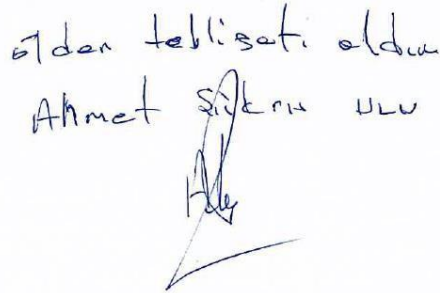 elden tebligatı aldım
Ahmet Şükrü ULU